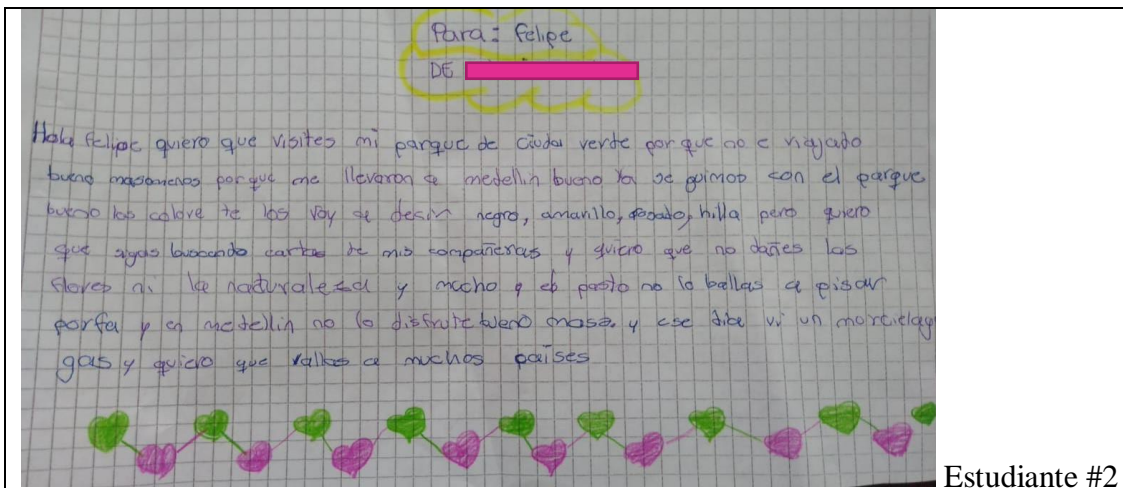 Para: Felipe
DE
Hola felipe quiero que visites mi parque de ciudad verde por que no e viajado
bueno masomenos porque me llevaron a medellin bueno ya se guimos con el parque
bueno los colore te los voy a desir negro, amarillo, rosado, hilla pero quiero
que sigas buscando cartas de mis compañeras y quiero que no dañes las
flores ni la naturaleza y mucho el pasto no lo ballas a pisar
porfa y en medellin no lo disfrute bueno mas y ese dia vi un morcielag
gas y quiero que vallas a muchos países
Estudiante #2